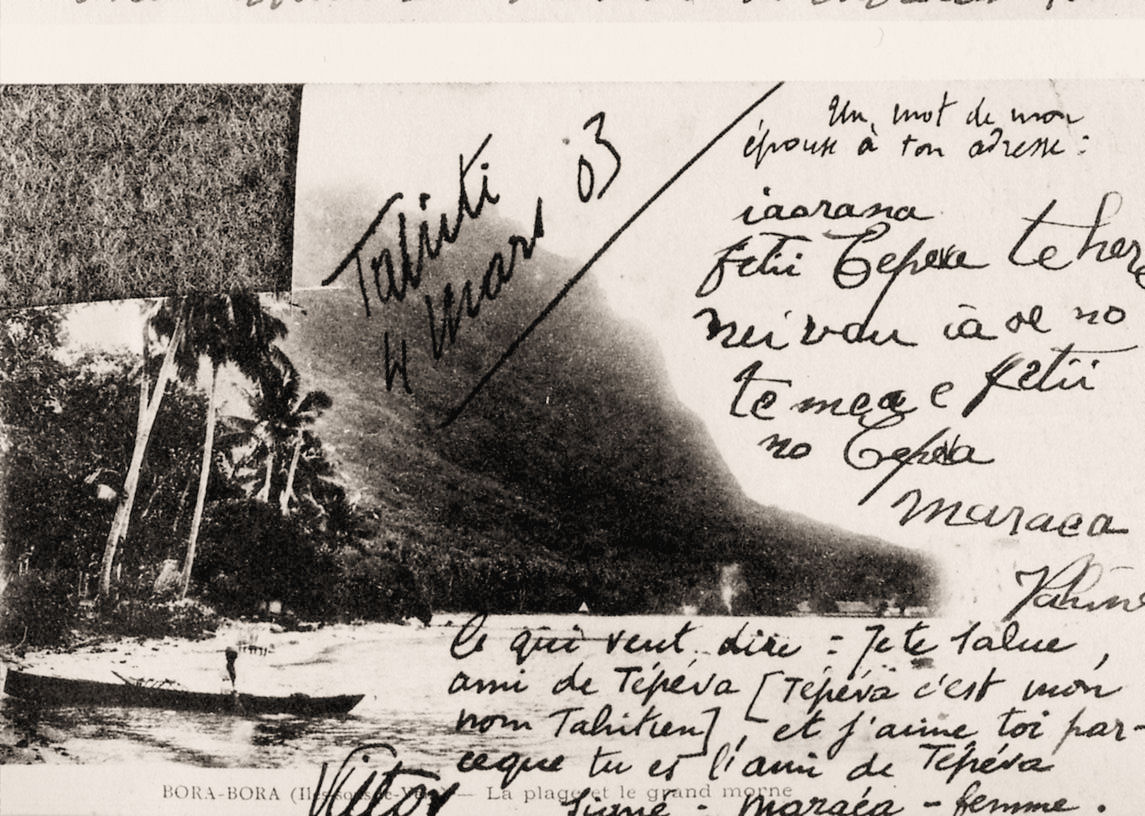 Tahiti
4 Mars 03
Un mot de mon
épouse à ton adresse :
iaorana
fetii Tepeva te her
nei vau ia oe no
te mea e fetii
no Tepeva
Maraea
Vahine
Ce qui veut dire : Je te salue,
ami de Tépéva [Tépéva c'est mon
nom Tahitien], et j'aime toi par-
ceque tu es l'ami de Tépéva
Signé - Maraéa - femme.
Victor
BORA-BORA (Iles-sous-le-Vent) — La plage et le grand morne